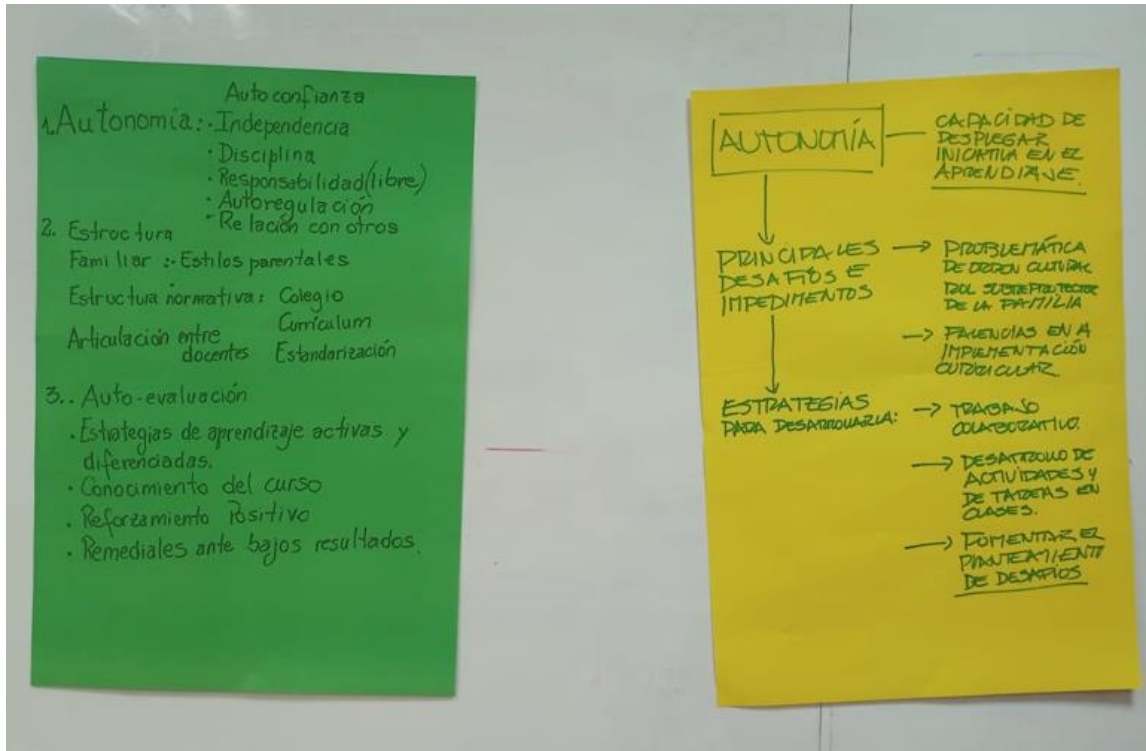 Autoconfianza
1. Autonomía: · Independencia
· Disciplina
· Responsabilidad (libre)
· Autoregulación
· Relación con otros
2. Estructura
Familiar :· Estilos parentales
Estructura normativa: Colegio
Currículum
Articulación entre
docentes Estandarización
3.. Auto-evaluación
· Estrategias de aprendizaje activas y
diferenciadas.
· Conocimiento del curso
· Reforzamiento Positivo
· Remediales ante bajos resultados.
AUTONOMÍA
CAPACIDAD DE
DESPLEGAR
INICIATIVA EN EL
APRENDIZAJE.
PRINCIPALES
DESAFÍOS E
IMPEDIMENTOS
→ PROBLEMÁTICA
DE ORDEN CULTURAL
ROL SOBREPROTECTOR
DE LA FAMILIA
→ FALENCIAS EN LA
IMPLEMENTACIÓN
CURRICULAR.
ESTRATEGIAS
PARA DESARROLLARLA:
→ TRABAJO
COLABORATIVO.
→ DESARROLLO DE
ACTIVIDADES Y
DE TAREAS EN
CLASES.
→ FOMENTAR EL
PLANTEAMIENTO
DE DESAFÍOS